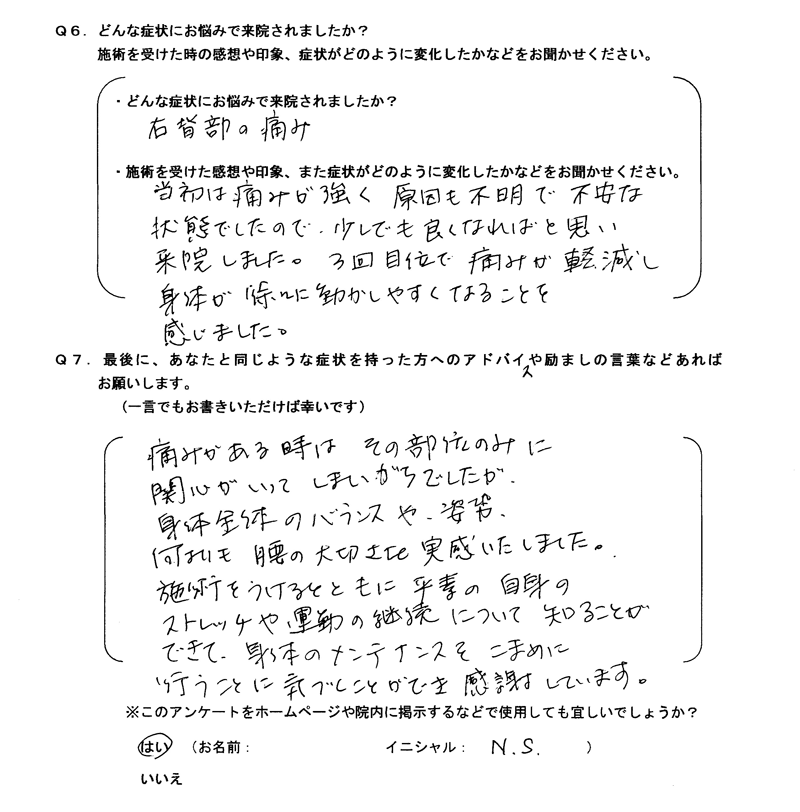 Q6．どんな症状にお悩みで来院されましたか？
施術を受けた時の感想や印象、症状がどのように変化したかなどをお聞かせください。
・どんな症状にお悩みで来院されましたか？
右背部の痛み
・施術を受けた感想や印象、また症状がどのように変化したかなどをお聞かせください。
当初は痛みが強く 原因も不明で 不安な
状態でしたので、少しでも良くなればと思い
来院しました。 3回目位で 痛みが 軽減し
身体が 徐々に動かしやすくなることを
感じました。
Q7．最後に、あなたと同じような症状を持った方へのアドバイスや励ましの言葉などあれば
お願いします。
（一言でもお書きいただけば幸いです）
痛みがある時は その部位のみに
関心がいって しまいがちでしたが、
身体全体のバランスや、姿勢、
何よりも 腰の大切さを 実感いたしました。
施術をうけるとともに 平素の 自身の
ストレッチや運動の継続 について 知ることが
できて、身体のメンテナンスを こまめに
行うことに気づくことができ 感謝しています。
※このアンケートをホームページや院内に掲示するなどで使用しても宜しいでしょうか？
はい （お名前： イニシャル： N.S. ）
いいえ